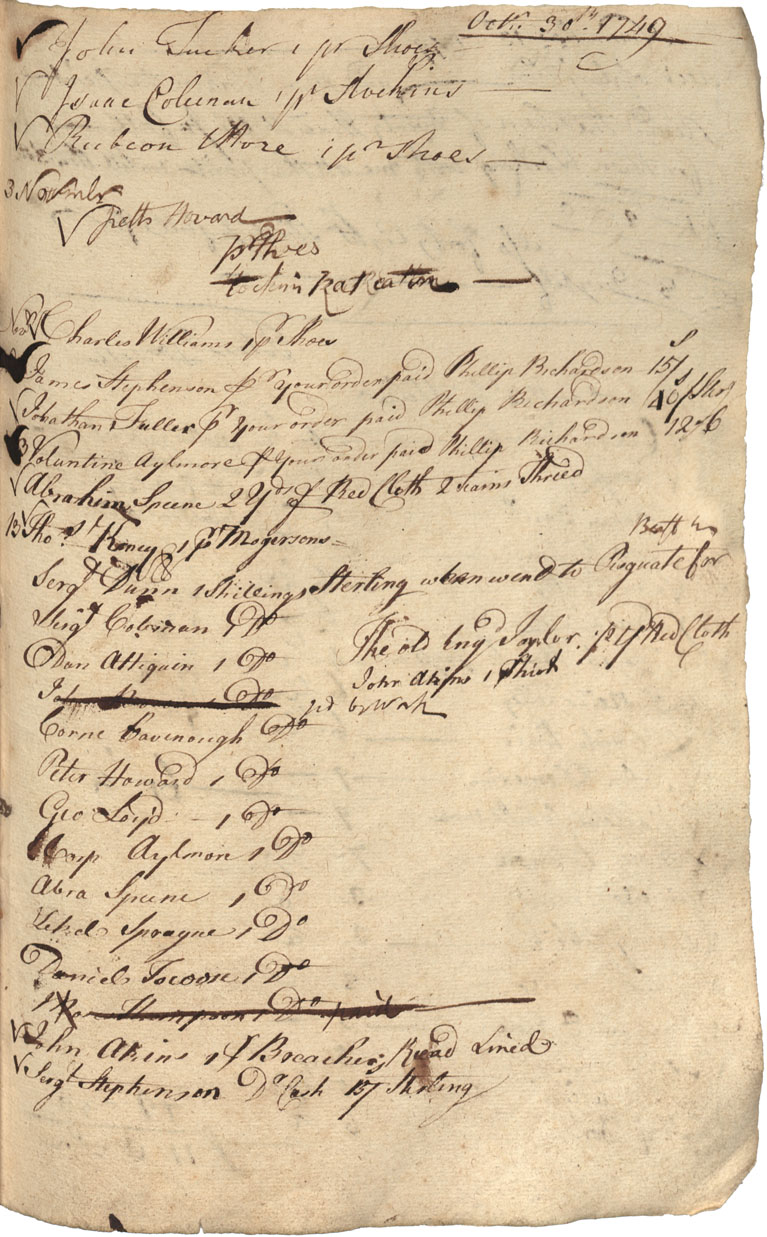 Octr. 30th. 1749
John Tucker 1 pr Shoes
Isaac Coleman 1 pr Stockins
Rubeon More 1 pr Shoes
3 Novembr
Howard
pr Shoes
Novr Charles Williams 1 pr Shoes
James Stephenson pr your order paid Phillip Richardson 15/
Jonathan Fuller pr your order paid Phillip Richardson
Voluntine Aylmore pr your order paid Phillip Richardson 12=6
Abraham Speene 2 Yds of Red Cloth 2 Thried
13 Thos. 1 pr Mogersons
Sergt Dunn 1 Shillings Sterling when wend to Pisquate for
Sergt Coleman 1 Do
The old Taylor Red Cloth
Dan Attiquin 1 Do
John Akins 1 Shirt
1 Do
by Work
Corne Cavenough Do
Peter Howard 1 Do
Geo Loyd 1 Do
Corp Aylmon 1 Do
Abra Speene 1 Do
Sprague 1 Do
Daniel 1 Do
Thompson 1 Do paid
John Akins 1 pr Lined
Sergt Stephenson Do Cash 15/ Sterling